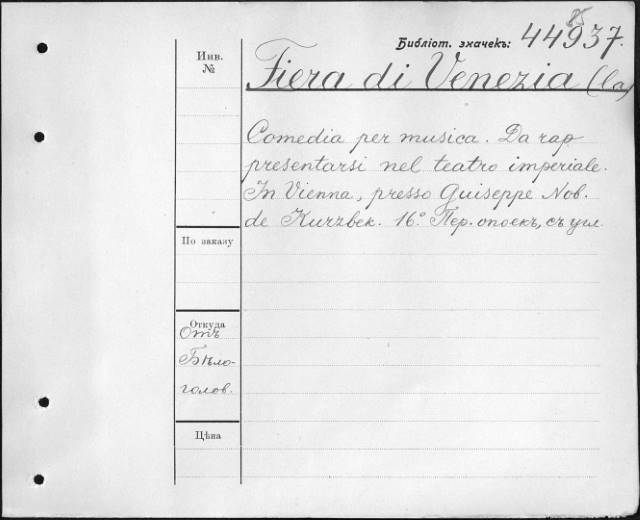 85
Библіот. значекъ: 44937.
Инв. №
Fiera di Venezia (La)
Comedia per musica. Da rap
presentarsi nel teatro imperiale.
In Vienna, presso Guiseppe Nob.
de Kurzbek. 16° Пер. опоек, съ угл.
По заказу
Откуда
Отъ
Бѣло-
голов.
Цѣна